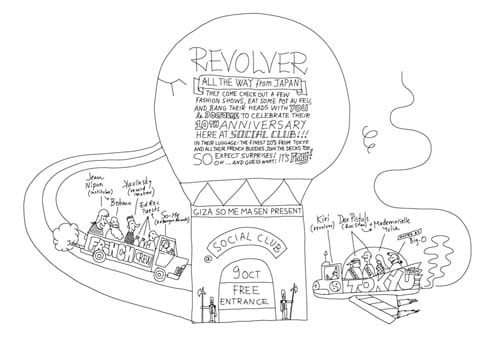 REVOLVER
ALL THE WAY from JAPAN
THEY COME CHECK OUT A FEW
FASHION SHOWS, EAT SOME POT AU FEU,
AND BANG THEIR HEADS WITH YOU
TO CELEBRATE THEIR
10TH ANNIVERSARY
HERE AT SOCIAL CLUB!!!
IN THEIR LUGGAGE: THE FINEST DJ'S FROM TOKYO
AND ALL THEIR FRENCH BUDDIES JOIN THE DECKS TOO
SO EXPECT SURPRISES! IT'S FREE!
OH... AND GUESS WHAT:
GIZA SO ME MA SEN PRESENT
@ SOCIAL CLUB
9 OCT
FREE
ENTRANCE
Jean
Nipon
(institubes)
Skavinsky
Ed Rec
So-Me
FRENCH CREW
Kiri
(revolver)
Dex Pistols
Mademoiselle
Yulia
HOSTED BY
Big-O
TOKYO